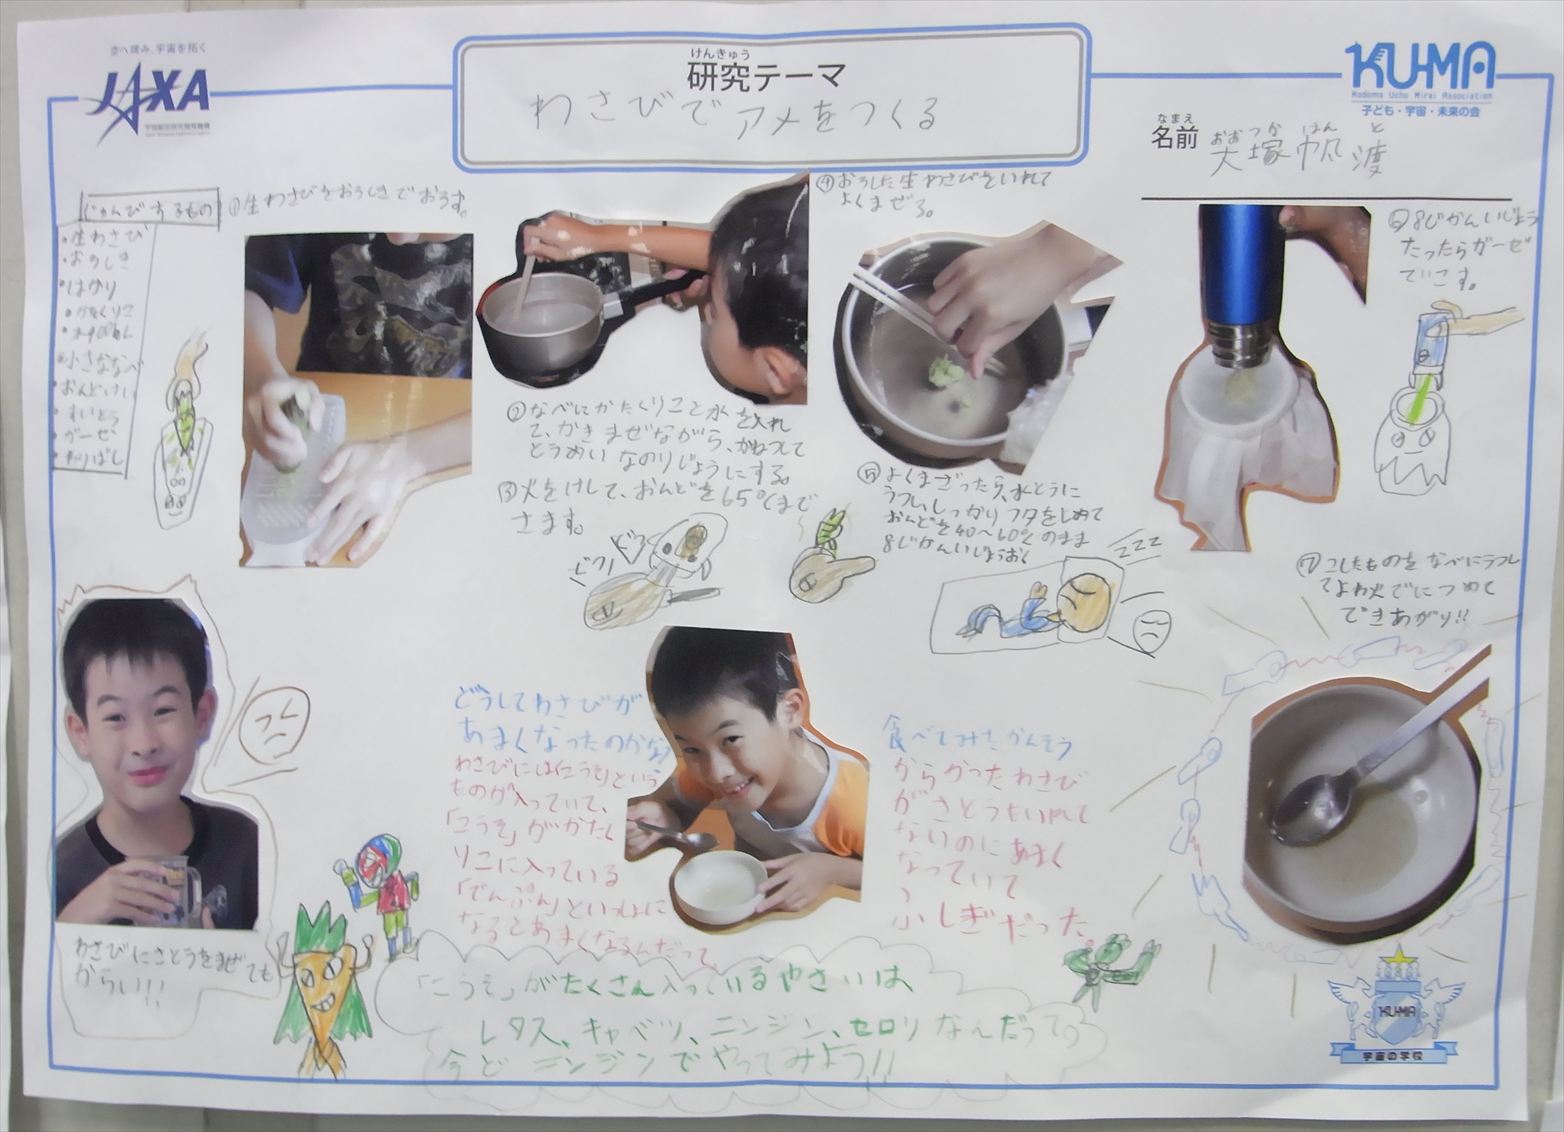 空へ挑み、宇宙を拓く
JAXA
宇宙航空研究開発機構
けんきゅう
研究テーマ
わさびでアメをつくる
KU-MA
Kodomo Uchu Mirai Association
子ども・宇宙・未来の会
なまえ
名前
おおつか はんと
大塚帆渡
じゅんびするもの
・生わさび
・おろしき
・はかり
・かたくりこ
・水400mL
・小さななべ
・おんどけい
・すいとう
・ガーゼ
・わりばし
①生わさびをおろしきでおろす。
②なべにかたくりこと水を入れ
て、かきまぜながら、かねつして
とうめいなのりじょうにする。
③火をけして、おんどを65℃まで
さます。
④おろした生わさびをいれて
よくまぜる。
⑤よくまざったら、水とうに
うつし、しっかりフタをしめて
おんどを40〜60℃のまま
8じかんいじょうおく
⑥8じかんいじょう
たったらガーゼ
でこす。
⑦こしたものをなべにうつし
てよわ火でにつめて
できあがり!!
ZZZ
わさびにさとうをまぜても
からい!!
どうしてわさびが
あまくなったのかな?
わさびには「こうそ」という
ものが入っていて、
「こうそ」がかたく
りこに入っている
「でんぷん」といっしょに
なるとあまくなるんだって。
食べてみたかんそう
からかったわさび
がさとうもいれて
ないのにあまく
なっていて
ふしぎだった。
「こうそ」がたくさん入っているやさいは、
レタス、キャベツ、ニンジン、セロリなんだって。
今どニンジンでやってみよう!!
KU-MA
宇宙の学校